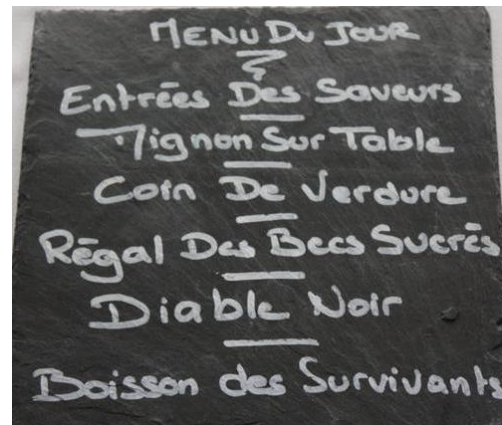 MENU DU JOUR
Entrées Des Saveurs
Mignon Sur Table
Coin De Verdure
Régal Des Becs Sucrés
Diable Noir
Boisson des Survivants